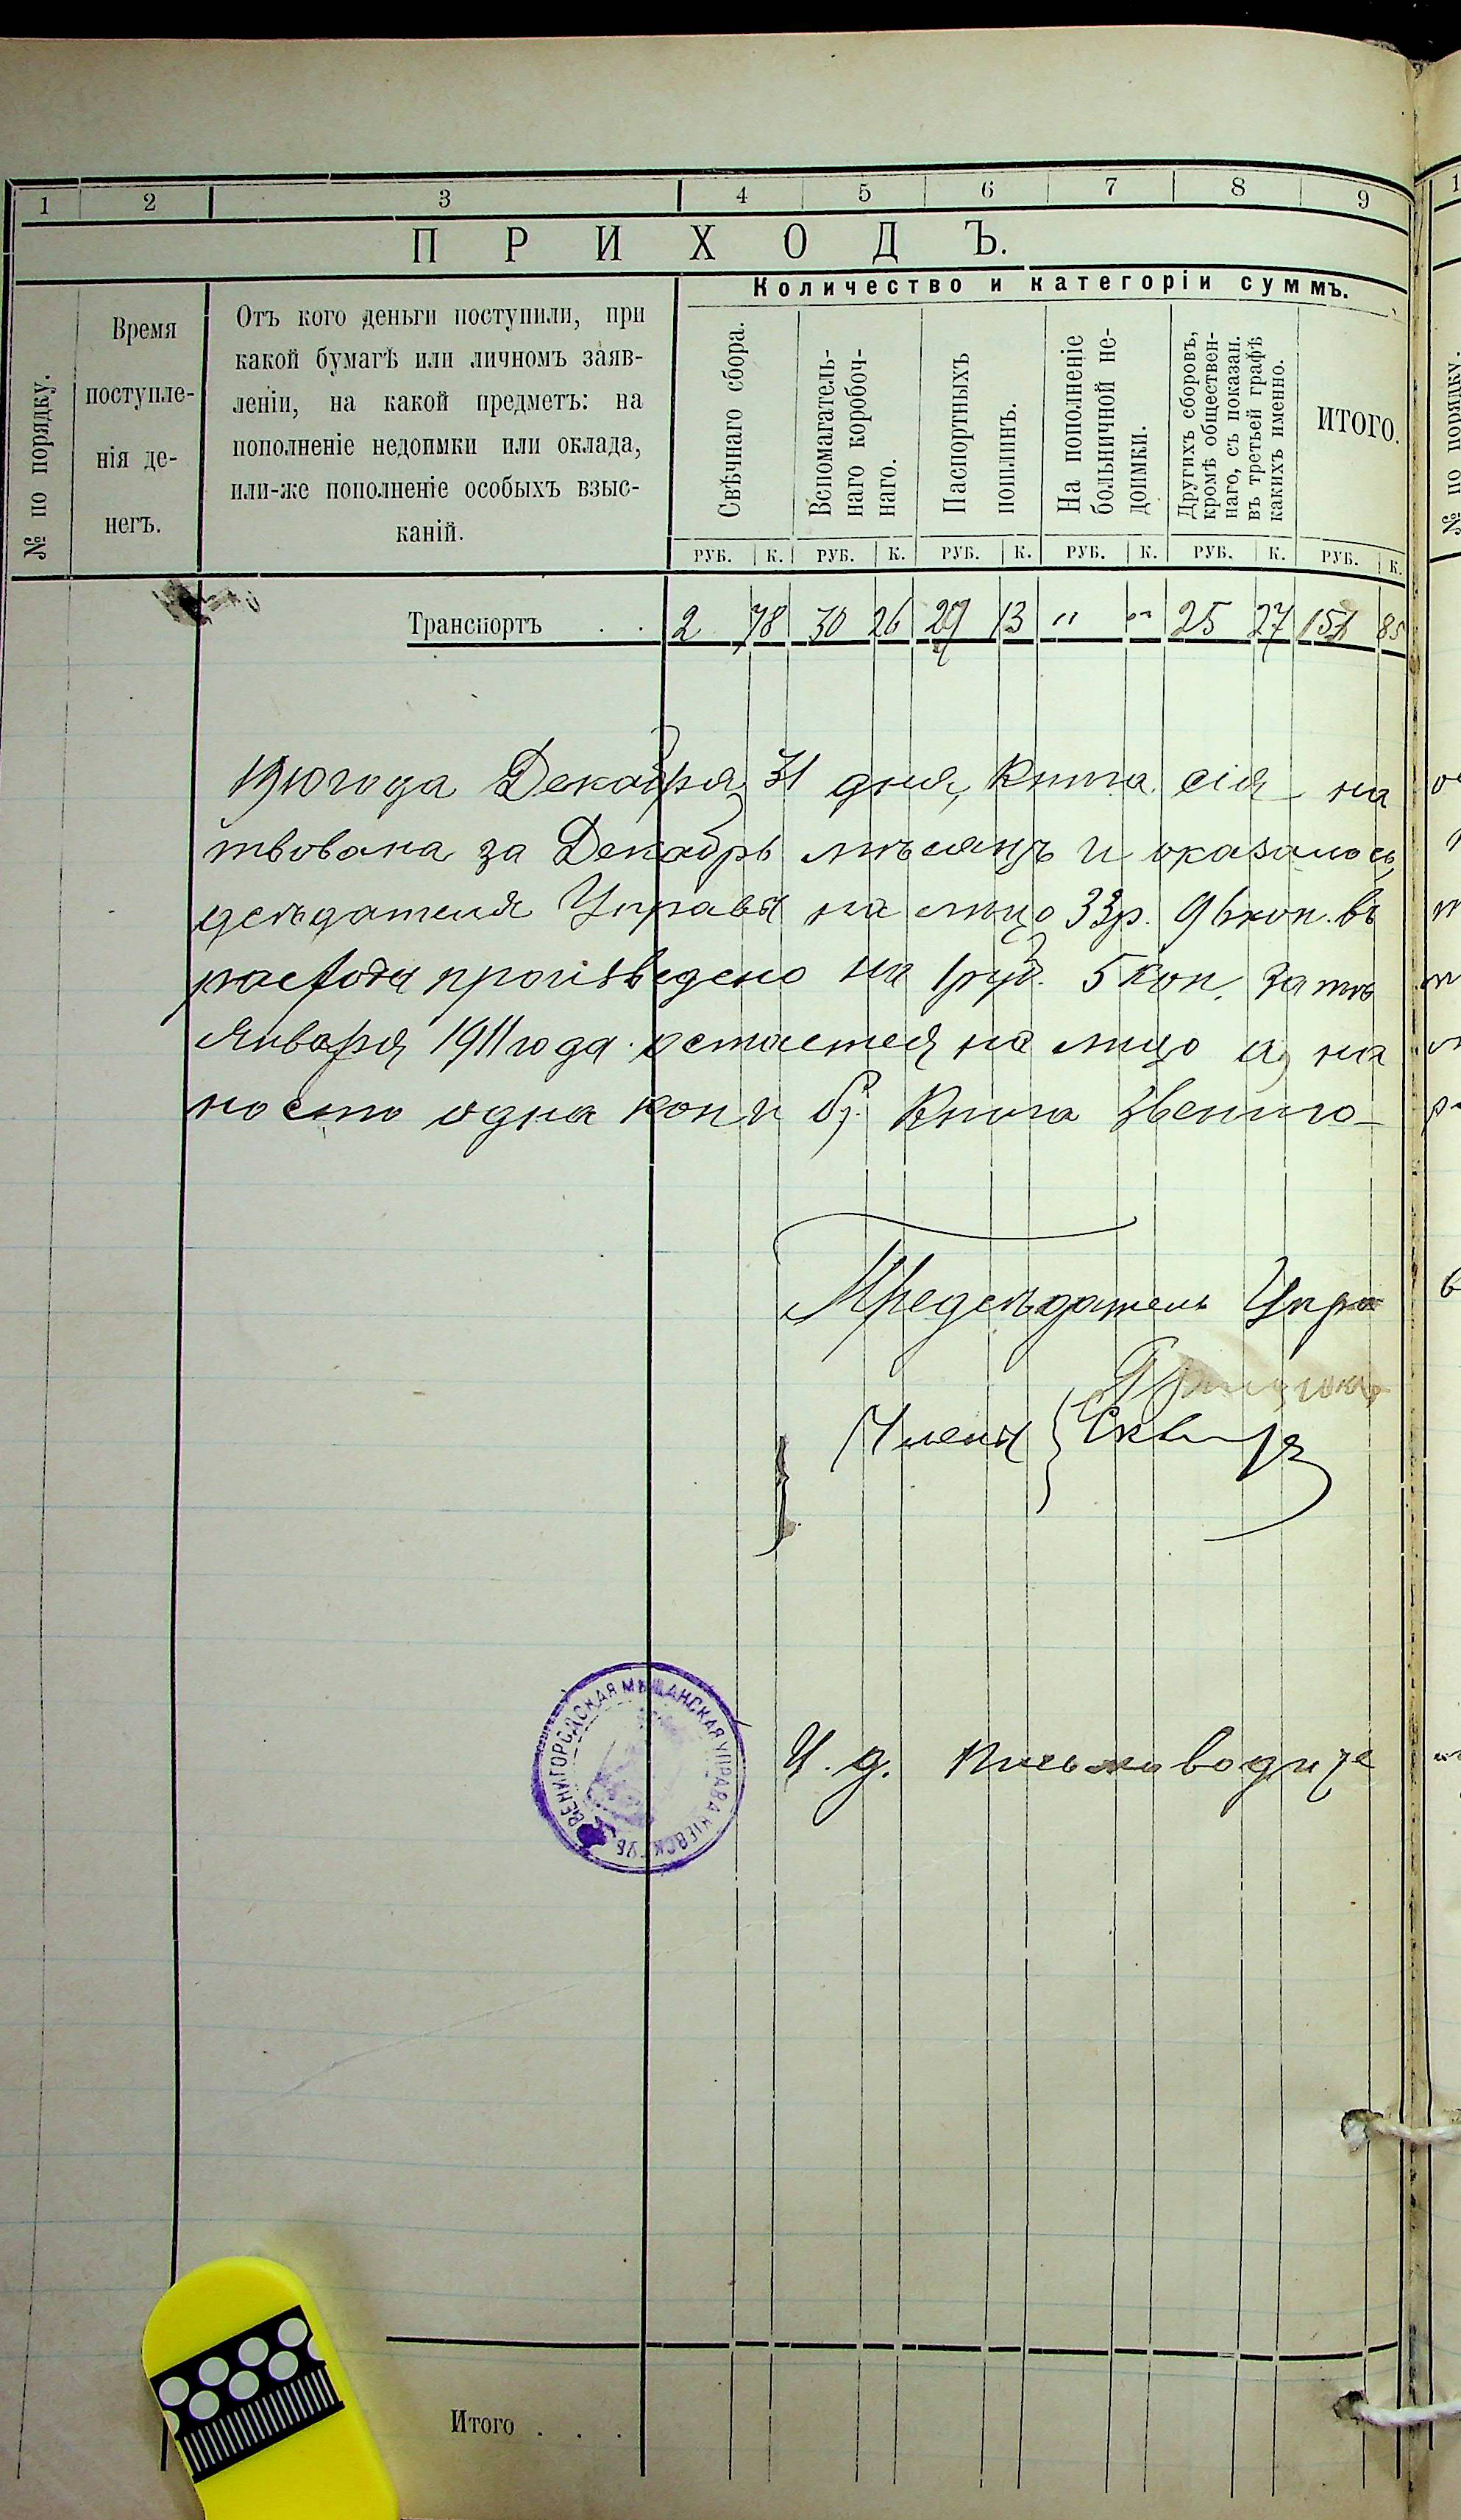 1 2 3 4 5 6 7 8 9
ПРИХОДЪ.
Количество и категоріи суммъ.
№ по порядку.
Время
поступле-
нія де-
негъ.
Отъ кого деньги поступили, при
какой бумагѣ или личномъ заяв-
леніи, на какой предметъ: на
пополненіе недоимки или оклада,
или-же пополненіе особыхъ взыс-
каній.
Свѣчнаго сбора.
Вспомагатель-
наго коробоч-
наго.
Паспортныхъ
пошлинъ.
На пополненіе
больничной не-
доимки.
Другихъ сборовъ,
кромѣ обществен-
наго, съ показан.
въ третьей графѣ
какихъ именно.
ИТОГО.
РУБ. К. РУБ. К. РУБ. К. РУБ. К. РУБ. К. РУБ. К.
Транспортъ . . 2 78 30 26 29 13 " " 25 27 151 85
1910 года Декабря 31 дня, Книга сія на
твована за Декабрь мѣсяцъ и оказалось
цсѣдателя Управы на лицо 33 р. 96 коп. въ
расхода произведено на 1 руб. 5 коп. затѣ
Января 1911 года остается на лицо и на
ность одна коп
Книга Звениго-
Предсѣдатель Упра
Члены
И. д. Письмоводите
ЗВЕНИГОРОДСКАЯ МѢЩАНСКАЯ УПРАВА КІЕВСК. ГУБ.
Итого . . .